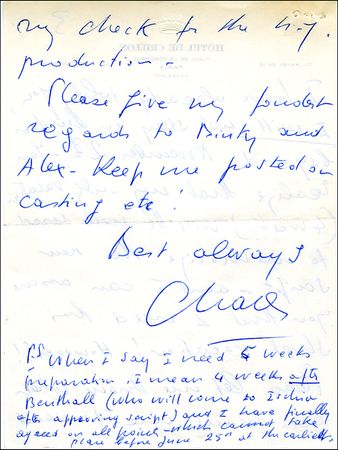 my check for the N.Y.
production -
Please give my fondest
regards to Binky and
Alex - Keep me posted on
casting etc!
Best always
HÔTEL DE CRILLON
PS When I say I need 5 weeks
preparation. I mean 4 weeks after
Benthall (who will come to Ischia
after approving script) and I have finally
agreed on all points - which cannot take
place before June 25th at the earliest.